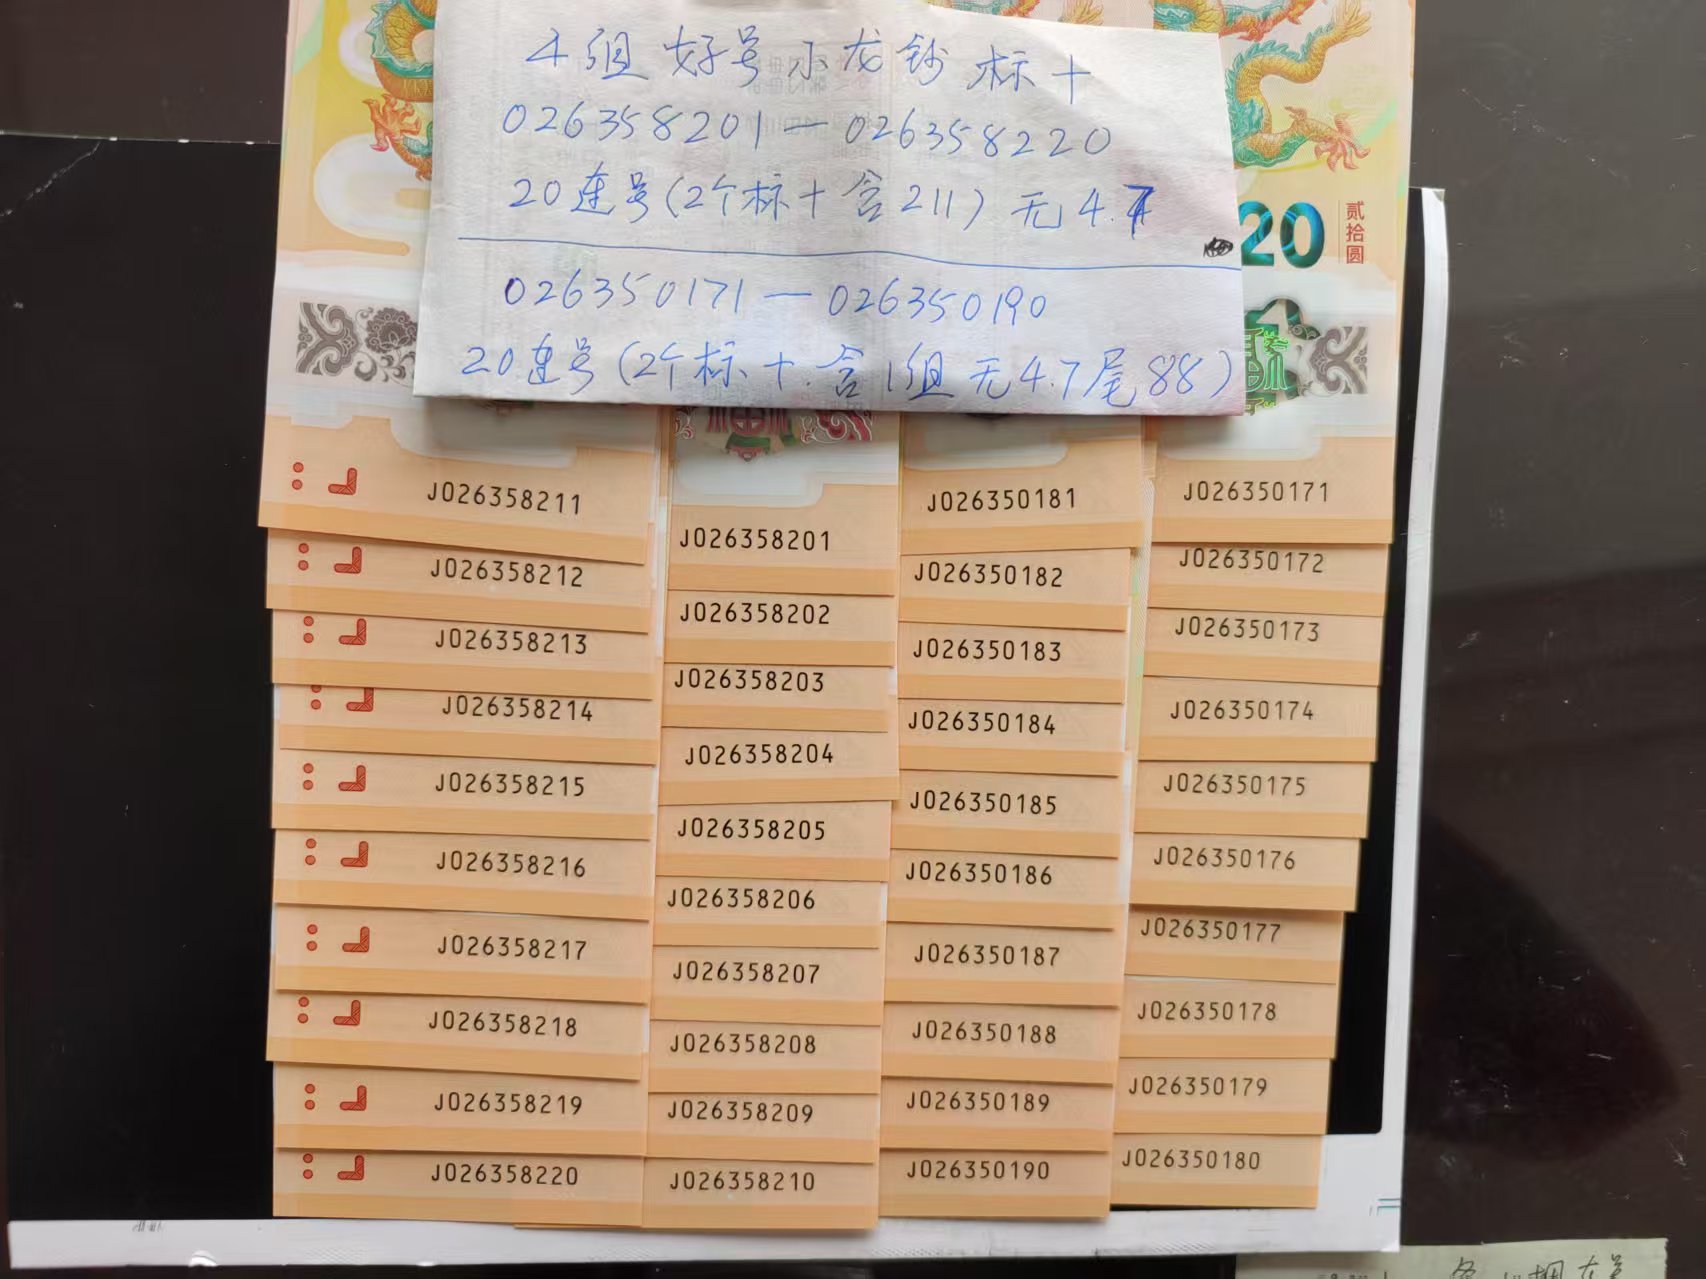 4组 好号小龙钞 标十
026358201—026358220
20连号(2个标十含211)无4.7
026350171—026350190
20连号(2个标十.含1组无4.7尾88)
20
贰拾圆
J026358211
J026358212
J026358213
J026358214
J026358215
J026358216
J026358217
J026358218
J026358219
J026358220
J026358201
J026358202
J026358203
J026358204
J026358205
J026358206
J026358207
J026358208
J026358209
J026358210
J026350181
J026350182
J026350183
J026350184
J026350185
J026350186
J026350187
J026350188
J026350189
J026350190
J026350171
J026350172
J026350173
J026350174
J026350175
J026350176
J026350177
J026350178
J026350179
J026350180